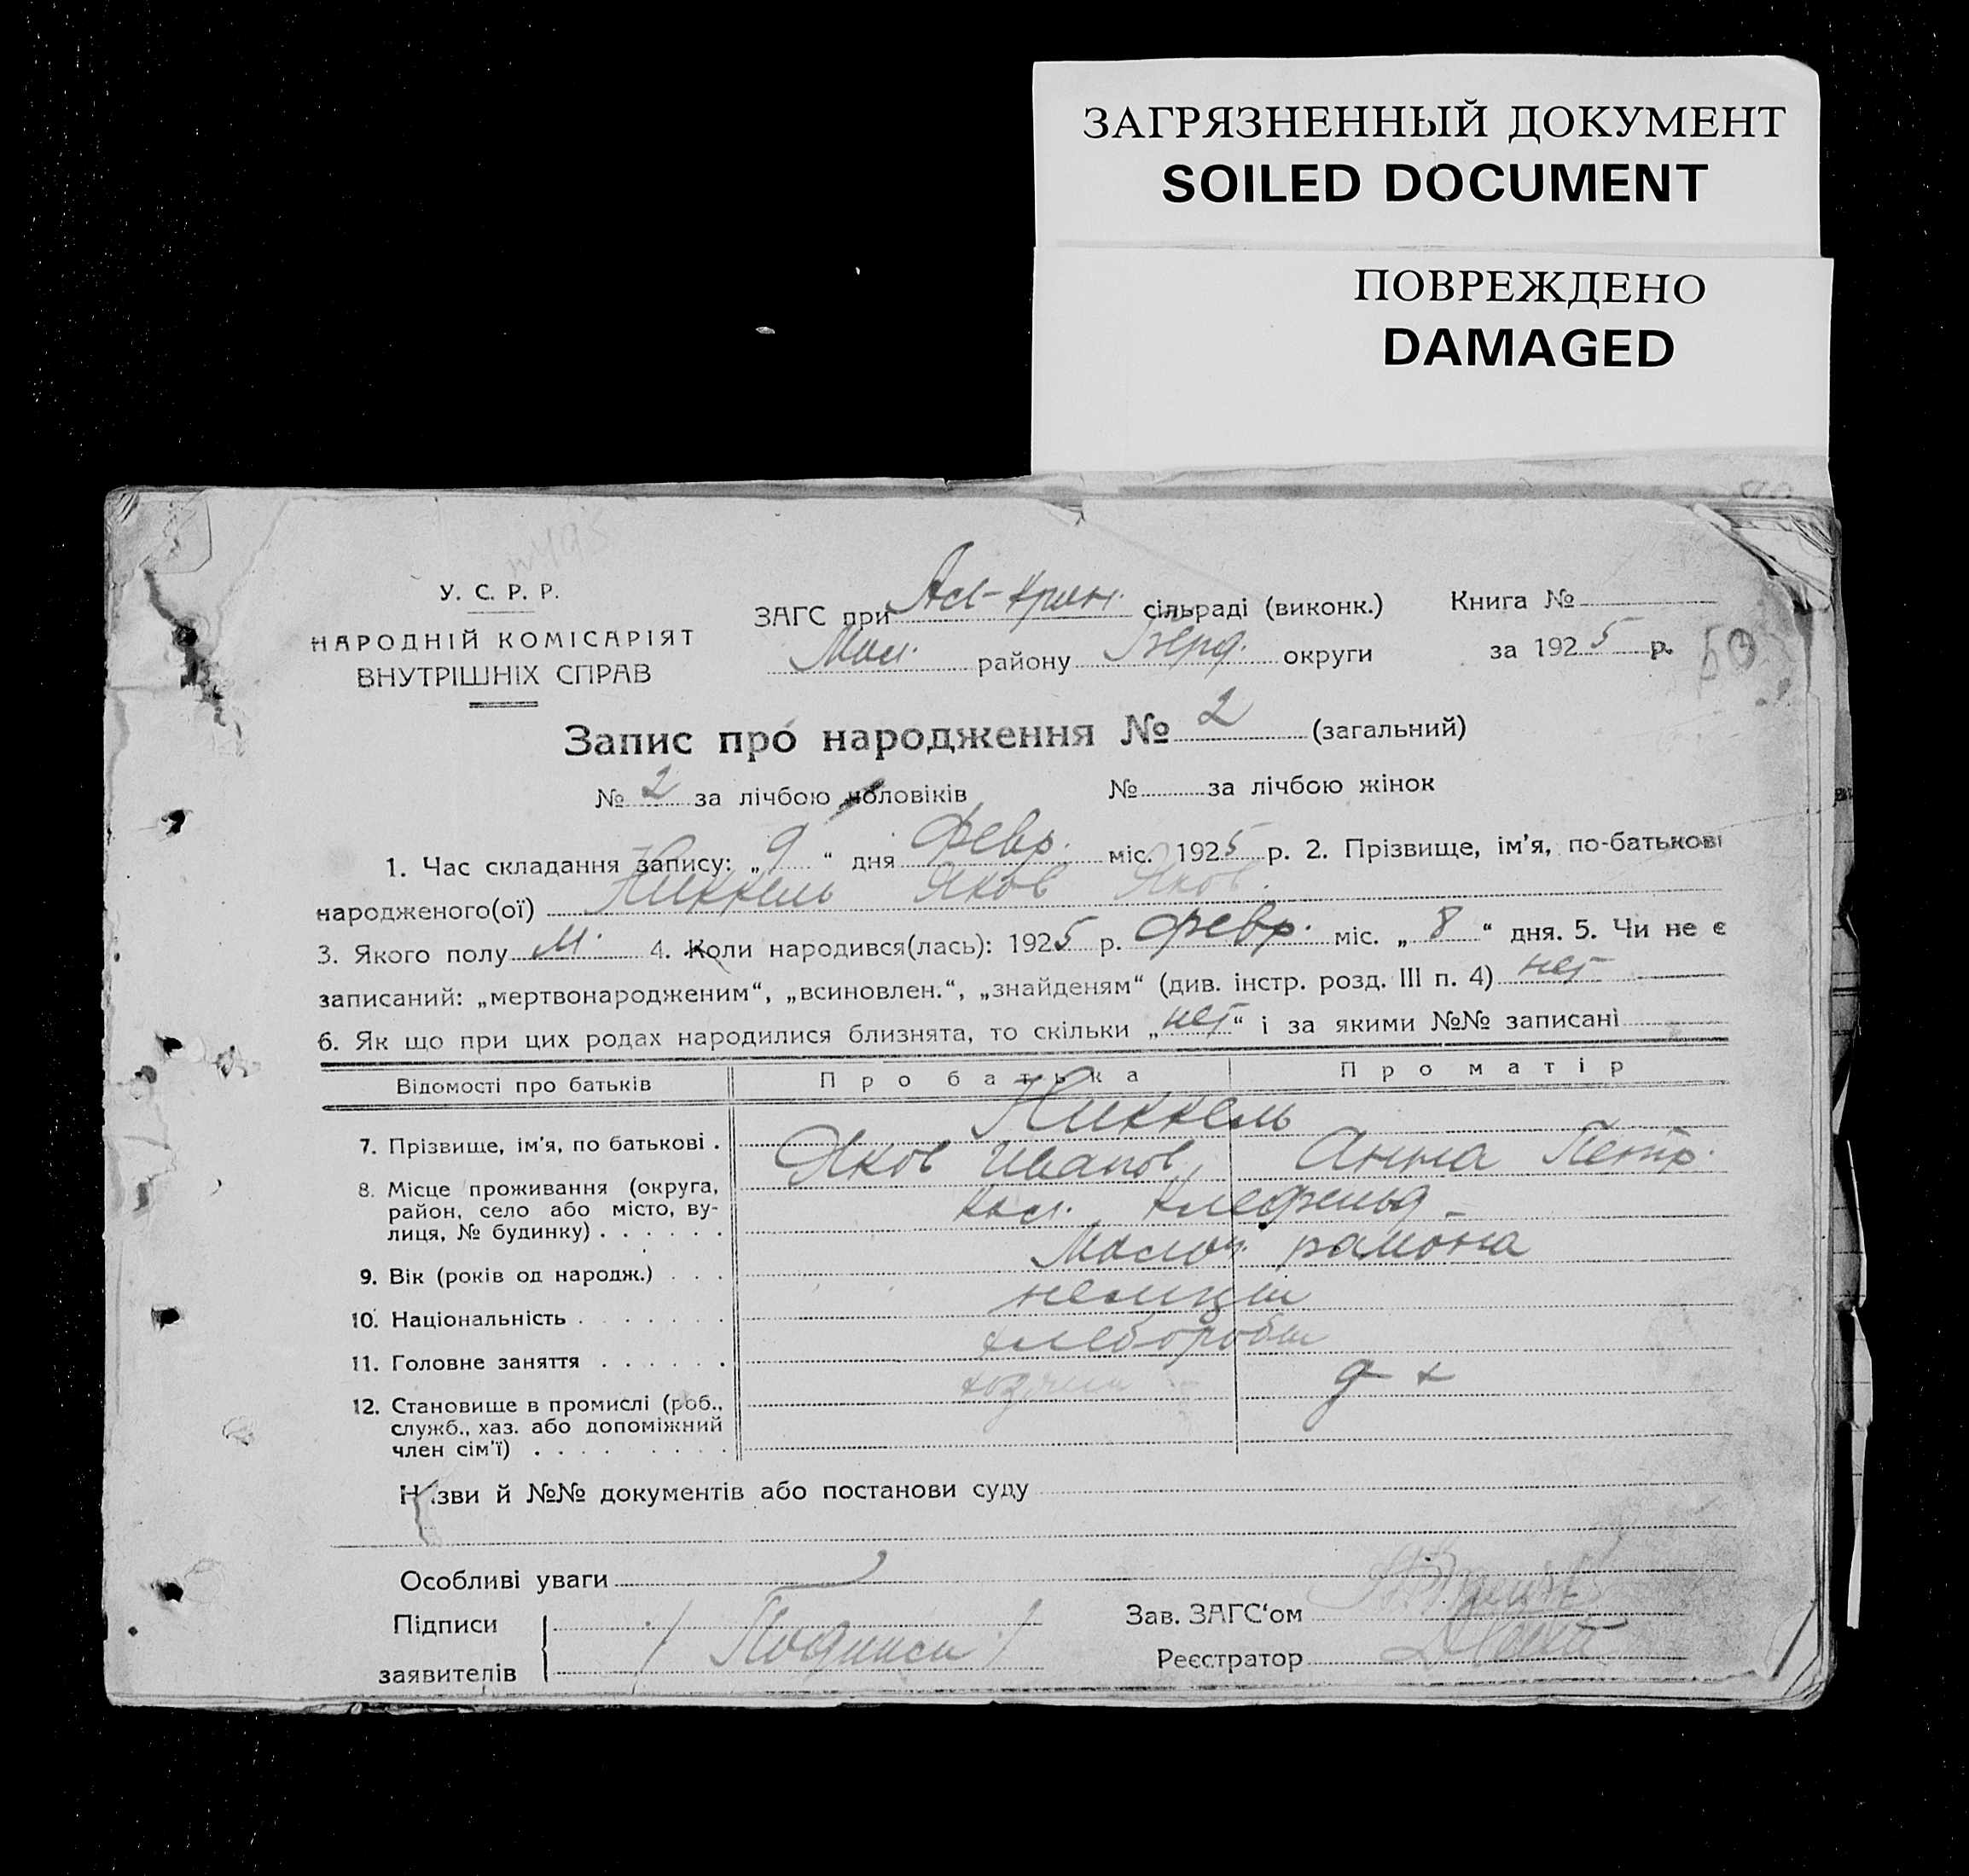 ЗАГРЯЗНЕННЫЙ ДОКУМЕНТ
SOILED DOCUMENT
ПОВРЕЖДЕНО
DAMAGED
У. С. Р. Р.
НАРОДНІЙ КОМІСАРІЯТ
ВНУТРІШНІХ СПРАВ
ЗАГС при сільраді (виконк.)
району Берд. округи
Книга №
за 1925 р.
Запис про народження № 2 (загальний)
№ 2 за лічбою чоловіків № за лічбою жінок
1. Час складання запису: „9“ дня февр. міс. 1925 р. 2. Прізвище, ім'я, по-батькові
народженого(ої) Никкель Яков Яков.
3. Якого полу М. 4. Коли народився(лась): 1925 р. февр. міс. „8“ дня. 5. Чи не є
записаний: „мертвонародженим“, „всиновлен.“, „знайденям“ (див. інстр. розд. III п. 4) нет
6. Як що при цих родах народилися близнята, то скільки „нет“ і за якими №№ записані
Відомості про батьків Про батька Про матір
Никкель
7. Прізвище, ім'я, по батькові . Яков Иванов. Анна Петр.
8. Місце проживання (округа,
район, село або місто, ву-
лиця, № будинку) . . . . . .
района
9. Вік (років од народж.) . . .
немцы
10. Національність . . . . . . .
хлеборобы
11. Головне заняття . . . . . .
12. Становище в промислі (роб.,
служб., хаз. або допоміжний
член сім'ї) . . . . . . . . .
Назви й №№ документів або постанови суду
Особливі уваги
Підписи
заявителів
/ Подписи /
Зав. ЗАГС'ом
Реєстратор